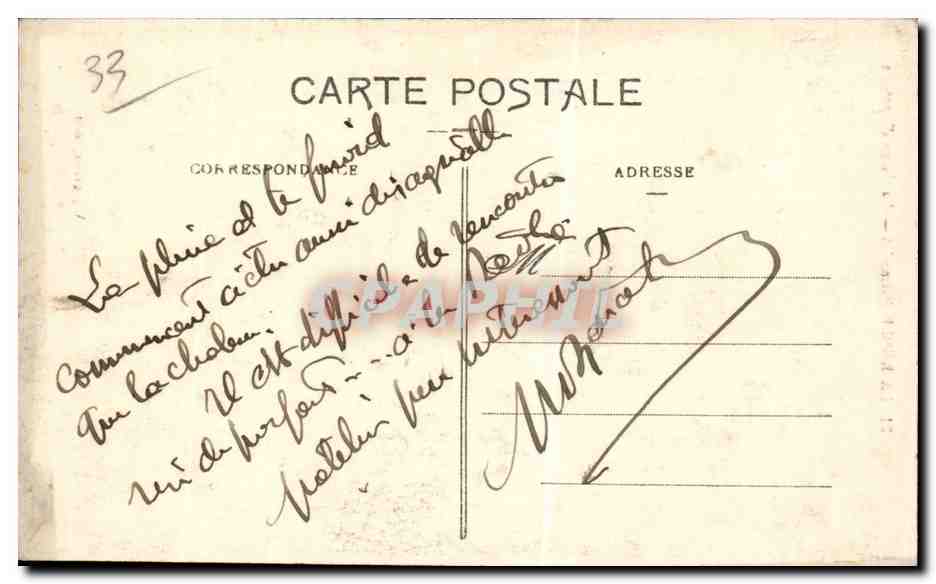 33
CARTE POSTALE
CORRESPONDANCE
ADRESSE
La pluie et le froid
commencent à être aussi désagréable
que la chaleur.
Il est difficile de rencontrer
rien de parfait - - - à la
patelin peu intéressant
CPAPHIL